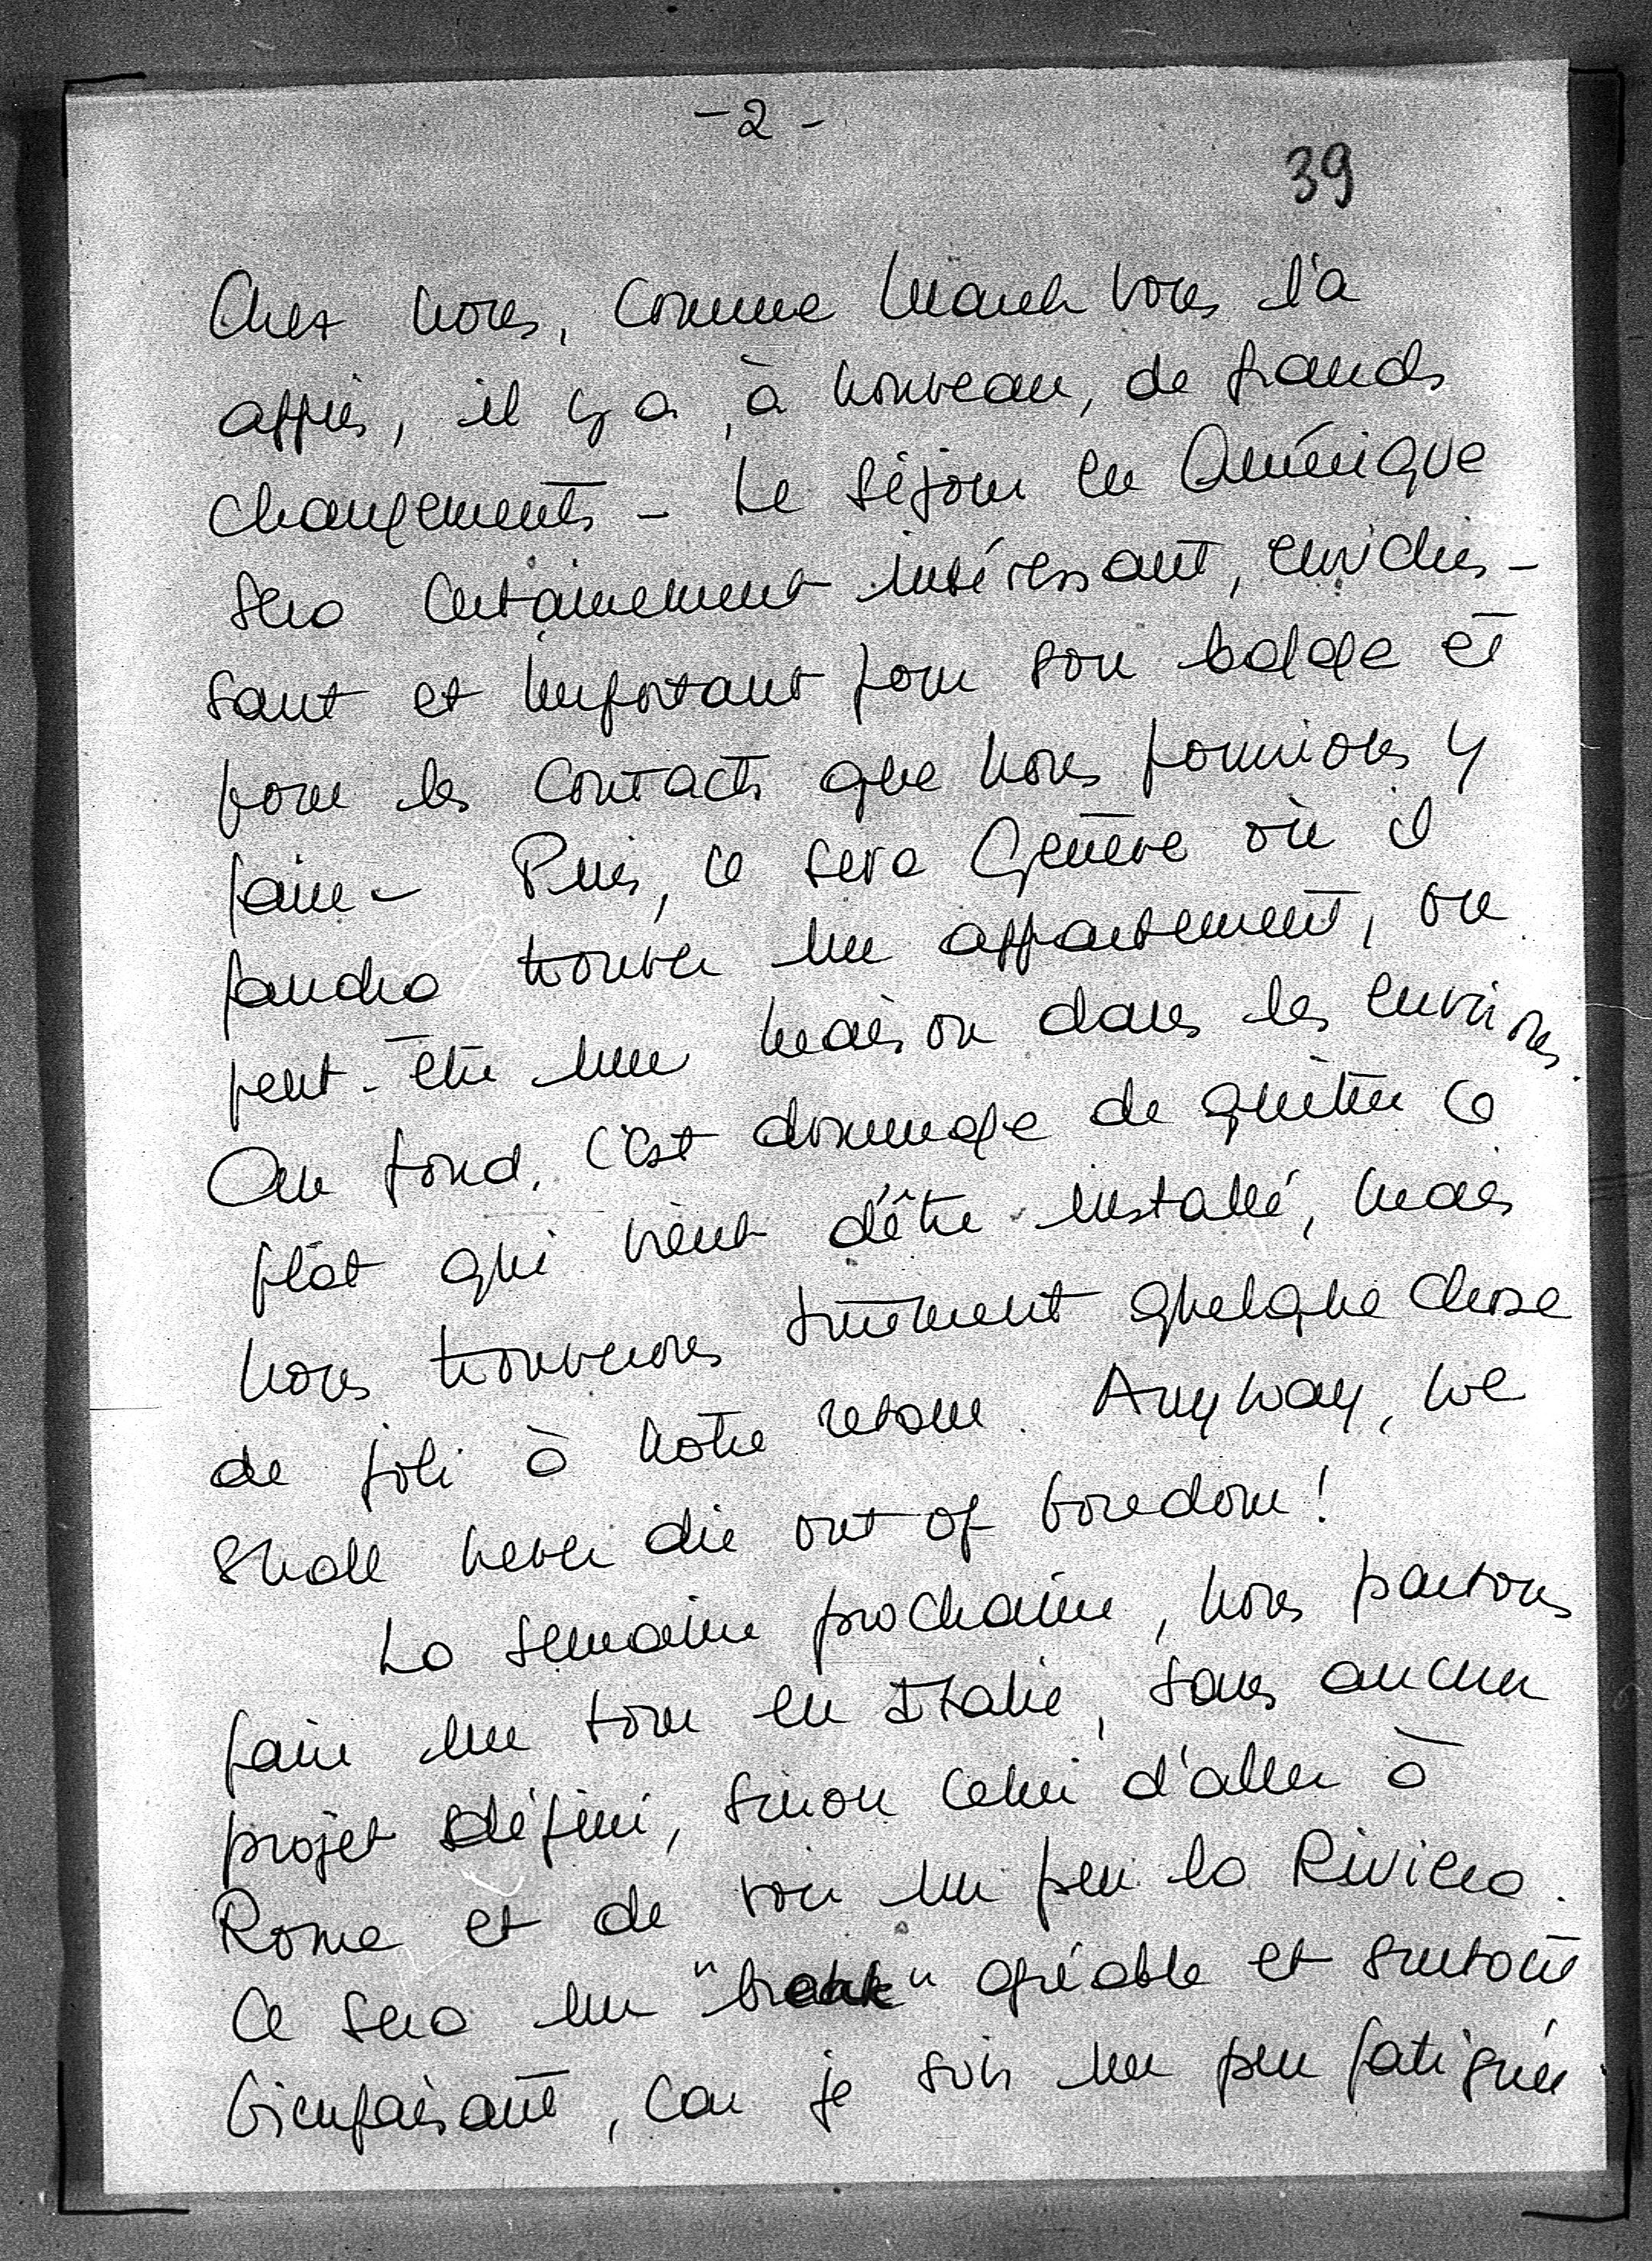 - 2 -
39
Chez nous, comme March vous l'a
appris, il y a, à nouveau, de grands
changements - Le séjour en Amérique
sera certainement intéressant, enrichis-
sant et important pour son bagage et
pour les contacts que nous pourrions y
faire - Puis, ce sera Genève où il
faudra trouver un appartement, ou
peut-être une maison dans les environs.
Au fond, c'est dommage de quitter ce
flat qui vient d'être installé, mais
nous trouverons sûrement quelque chose
de joli à notre retour. Anyway, we
shall never die out of boredom!
La semaine prochaine, nous partons
faire un tour en Italie, sans aucun
projet défini, sinon celui d'aller à
Rome et de voir un peu la Riviera.
Ce sera un "break" agréable et surtout
bienfaisant, car je suis un peu fatiguée